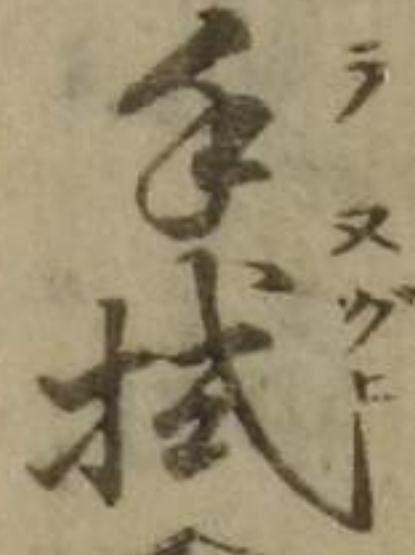 手拭
テヌグヒ